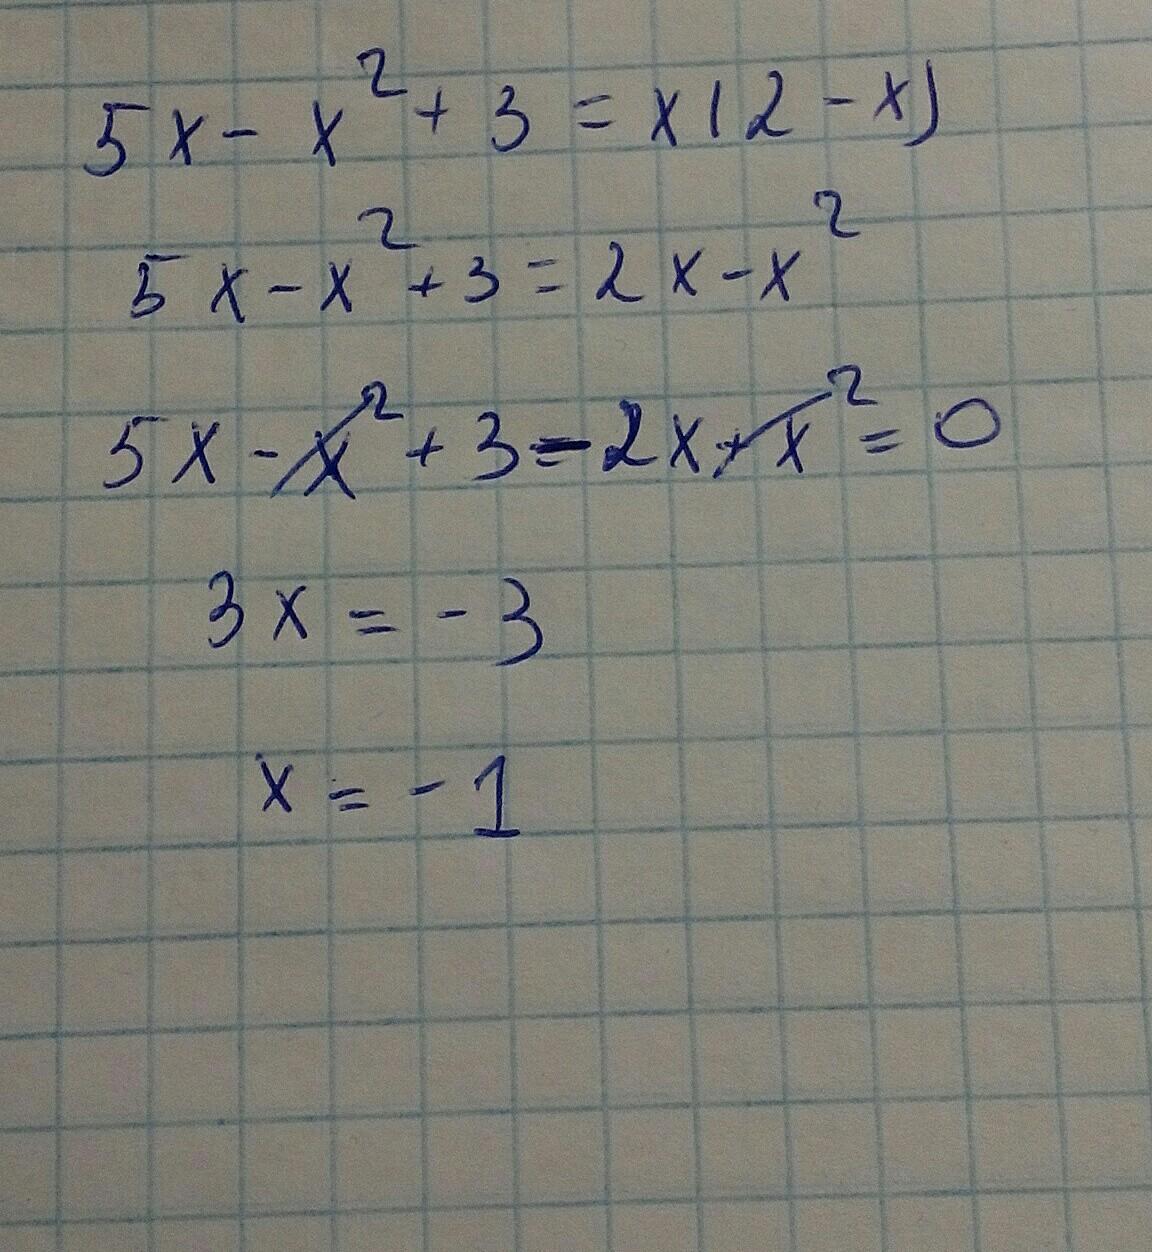 5x - x² + 3 = x(2 - x)
5x - x² + 3 = 2x - x²
5x - x² + 3 - 2x + x² = 0
3x = -3
x = -1